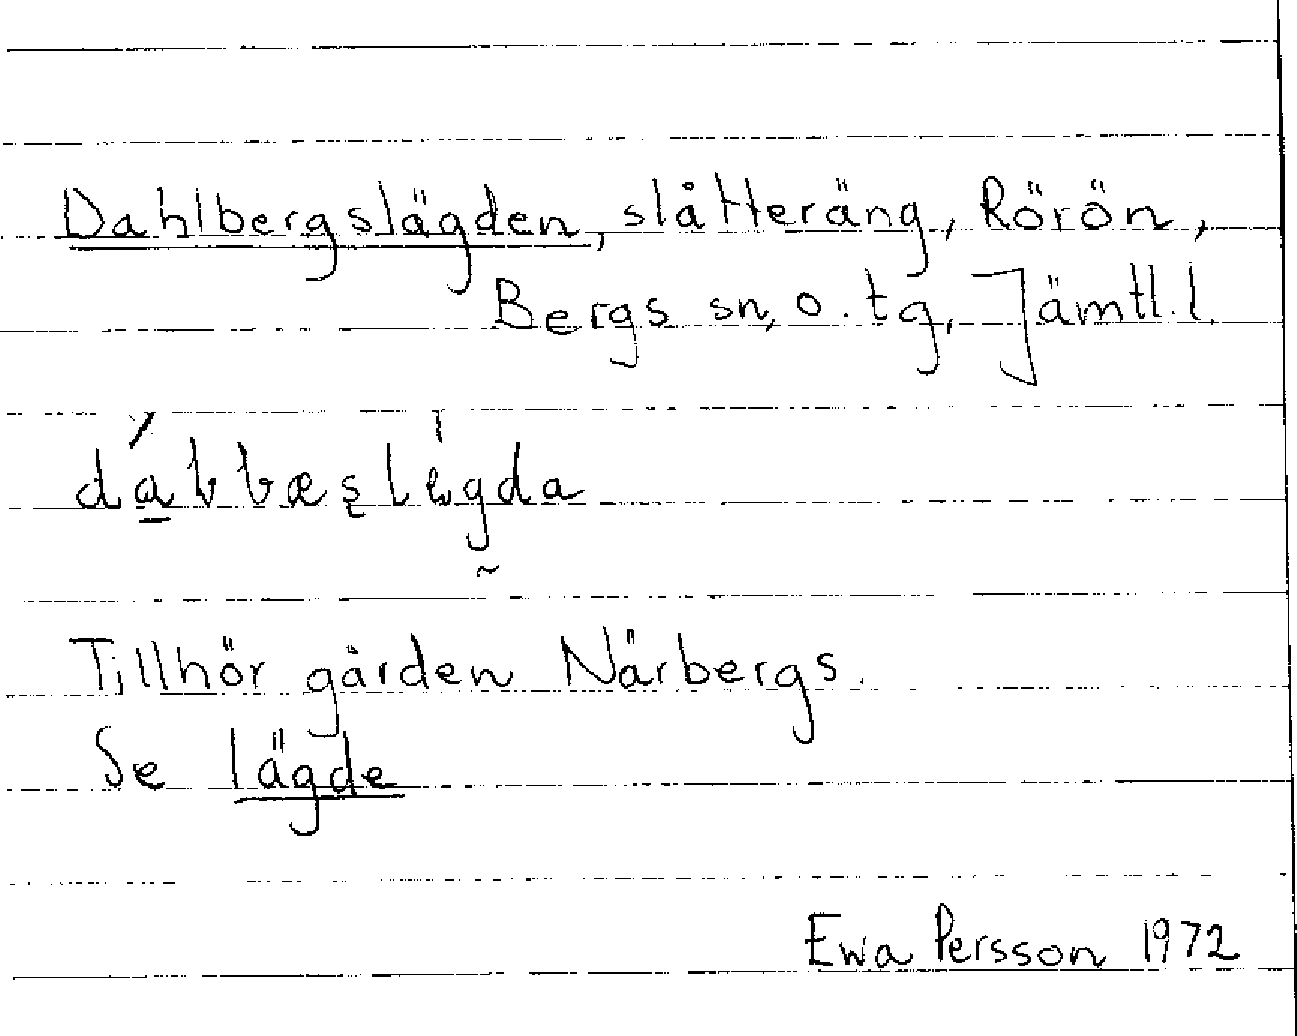 Dahlbergslägden, slåtteräng, Rörön,
Bergs sn, o. tg, Jämtl. l.
Tillhör gården Närbergs.
Se lägde
Ewa Persson 1972